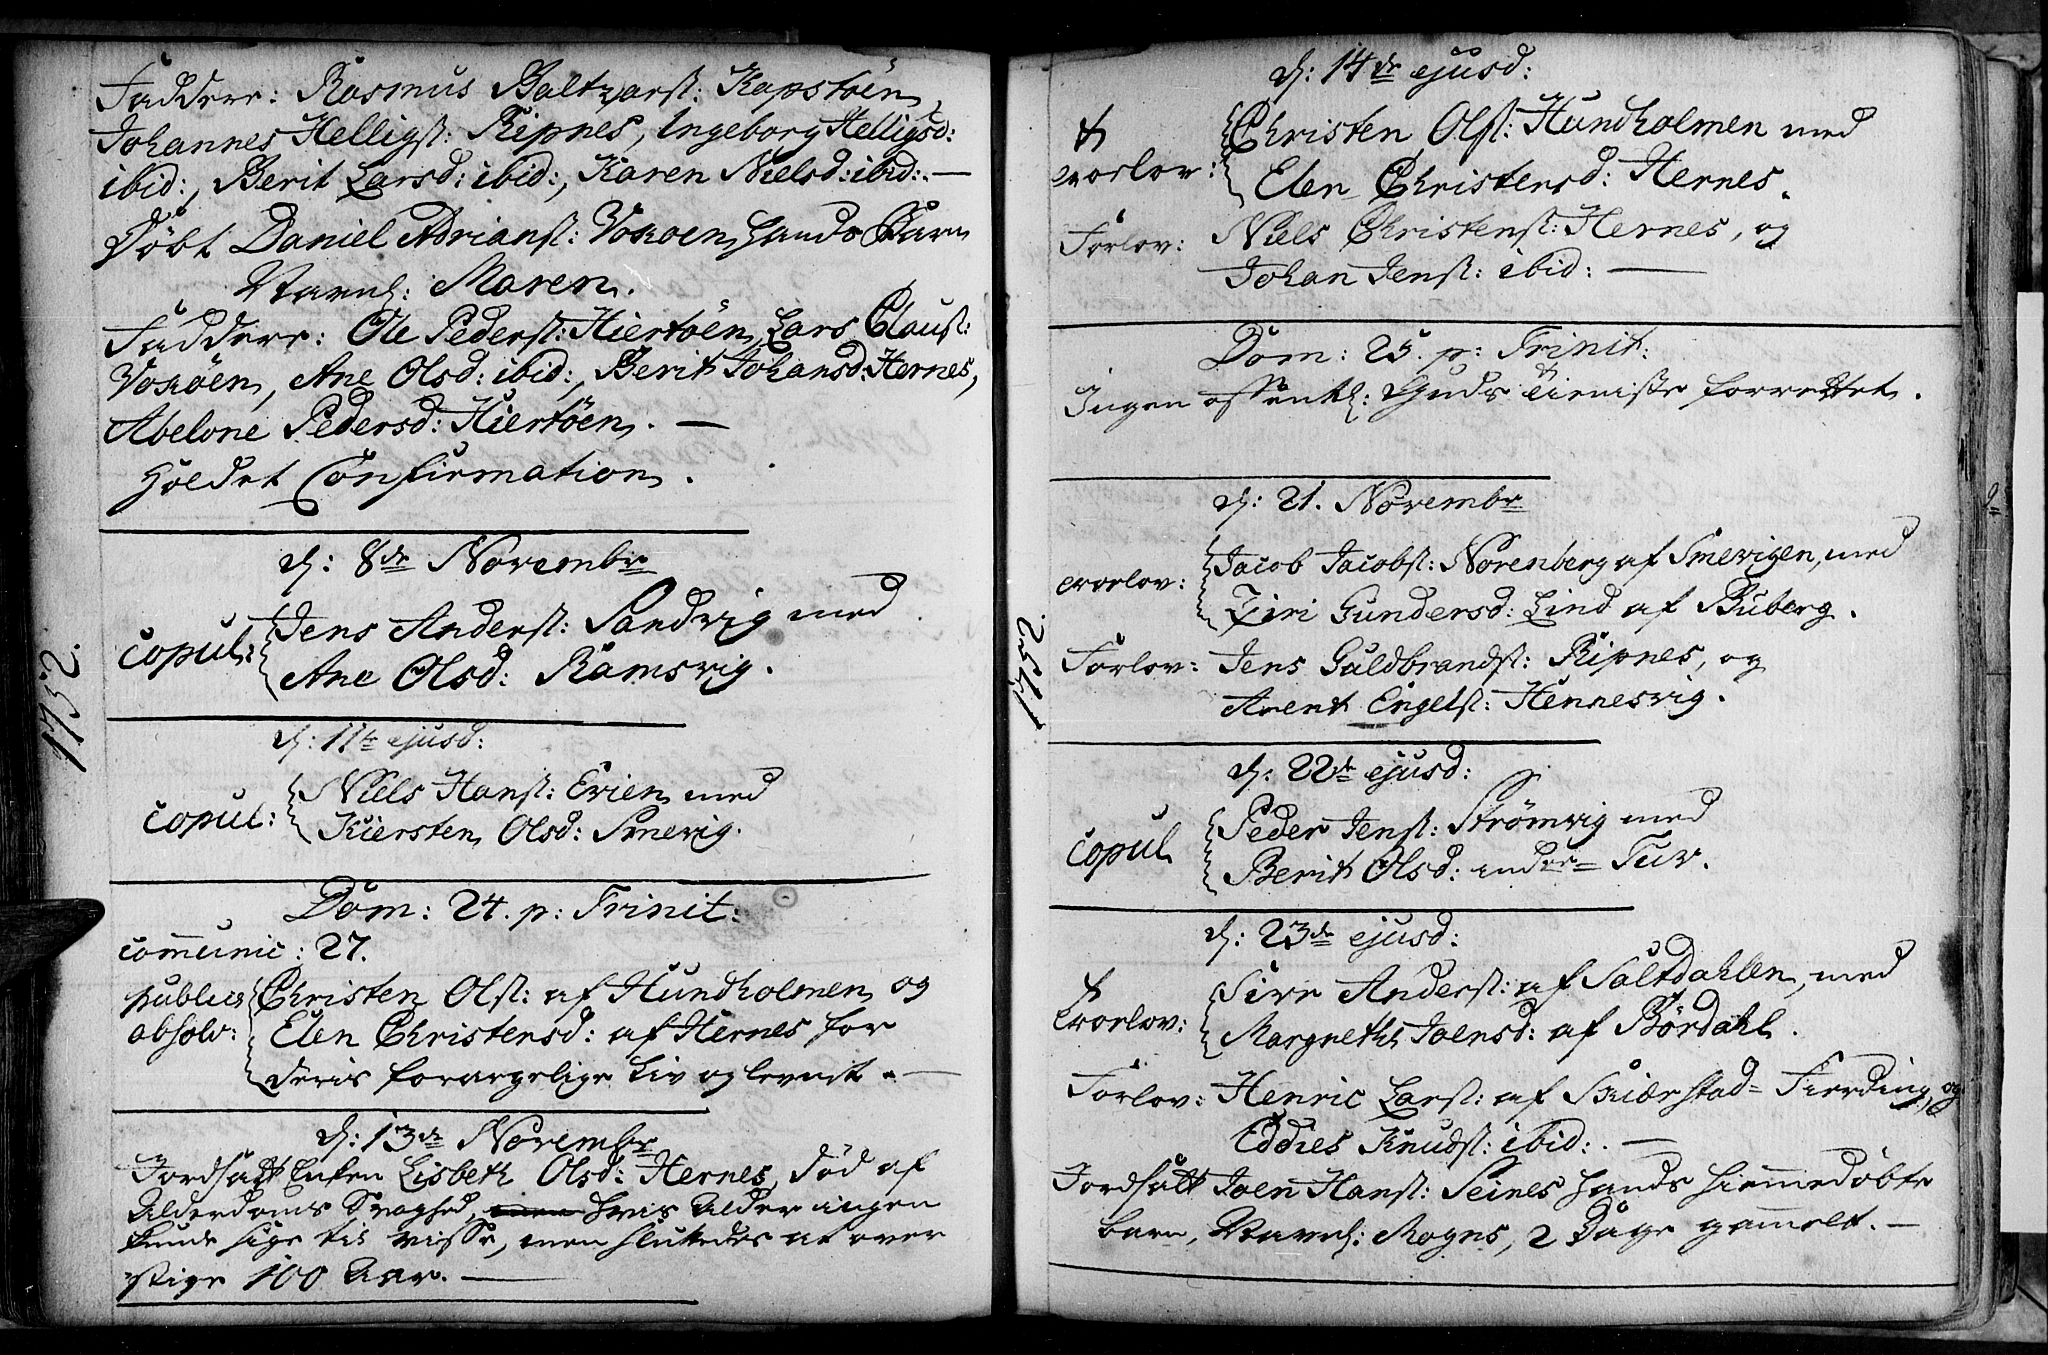 1752.
Faddere: Rasmus Baltzarsl: Kopstöen,
Johannes Helligsl: Ripnes, Ingeborg Helligsd:
ibid:, Berit Larsd: ibid:, Karen Nielsd: ibid:. —
Döbt Daniel Adriansl: Voxöen hands Barn
Navnl: Maren.
Faddere: Ole Pedersl: Hiertöen, Lars Clausl:
Voxöen, Ane Olsd: ibid:, Berit Johansd: Hernes,
Abelone Pedersd: Hiertöen. —
Holdet Confirmation.
d: 8de Novembr
copul: Jens Andersl: Sandvig med
Ane Olsd: Ramsvig.
d: 11te ejusd:
copul: Niels Hansl: Evien med
Kiersten Olsd: Smevig.
Dom: 24. p: Trinit:
communic: 27.
publice absolv: Christen Olsl: af Hundholmen og
Elen Christensd: af Hernes for
deris forargelige Liv og levnet. —
d: 13de Novembr
Jordsatt Enken Lisbeth Olsd: Hernes, död af
Alderdoms Svaghed, hvis Alder ingen
kunde sige til visse, men sluttedes at over
stige 100 Aar. —
1752.
d: 14de ejusd:
trorlov: Christen Olsl: Hundholmen med
Elen Christensd: Hernes.
Forlov: Niels Christensl: Hernes, og
Johan Jensl: ibid: —
Dom: 25. p: Trinit:
Ingen offentl: Guds tieniste forrettet.
d: 21. Novembr
trorlov: Jacob Jacobsl: Norenberg af Smevigen, med
Ziri Gundersd: Lind af Buberg.
Forlov: Jens Guldbrandsl: Ripnes, og
Arent Engelsl: Hennesvig.
d: 22de ejusd:
copul Peder Jensl: Strömvig med
Berit Olsd: indre= Tuv.
d: 23de ejusd:
trorlov: Sivr Andersl: af Saltdahlen, med
Margreth Joensd: af Bördahl.
Forlov: Henric Larsl: af Skierstad= Fierding, og
Eddies Knudsl: ibid:. —
Jordsatt Joen Hansl: Seines hands hiemmedöbte
barn, Navnl: Mogns, 2 Dage gamelt. —